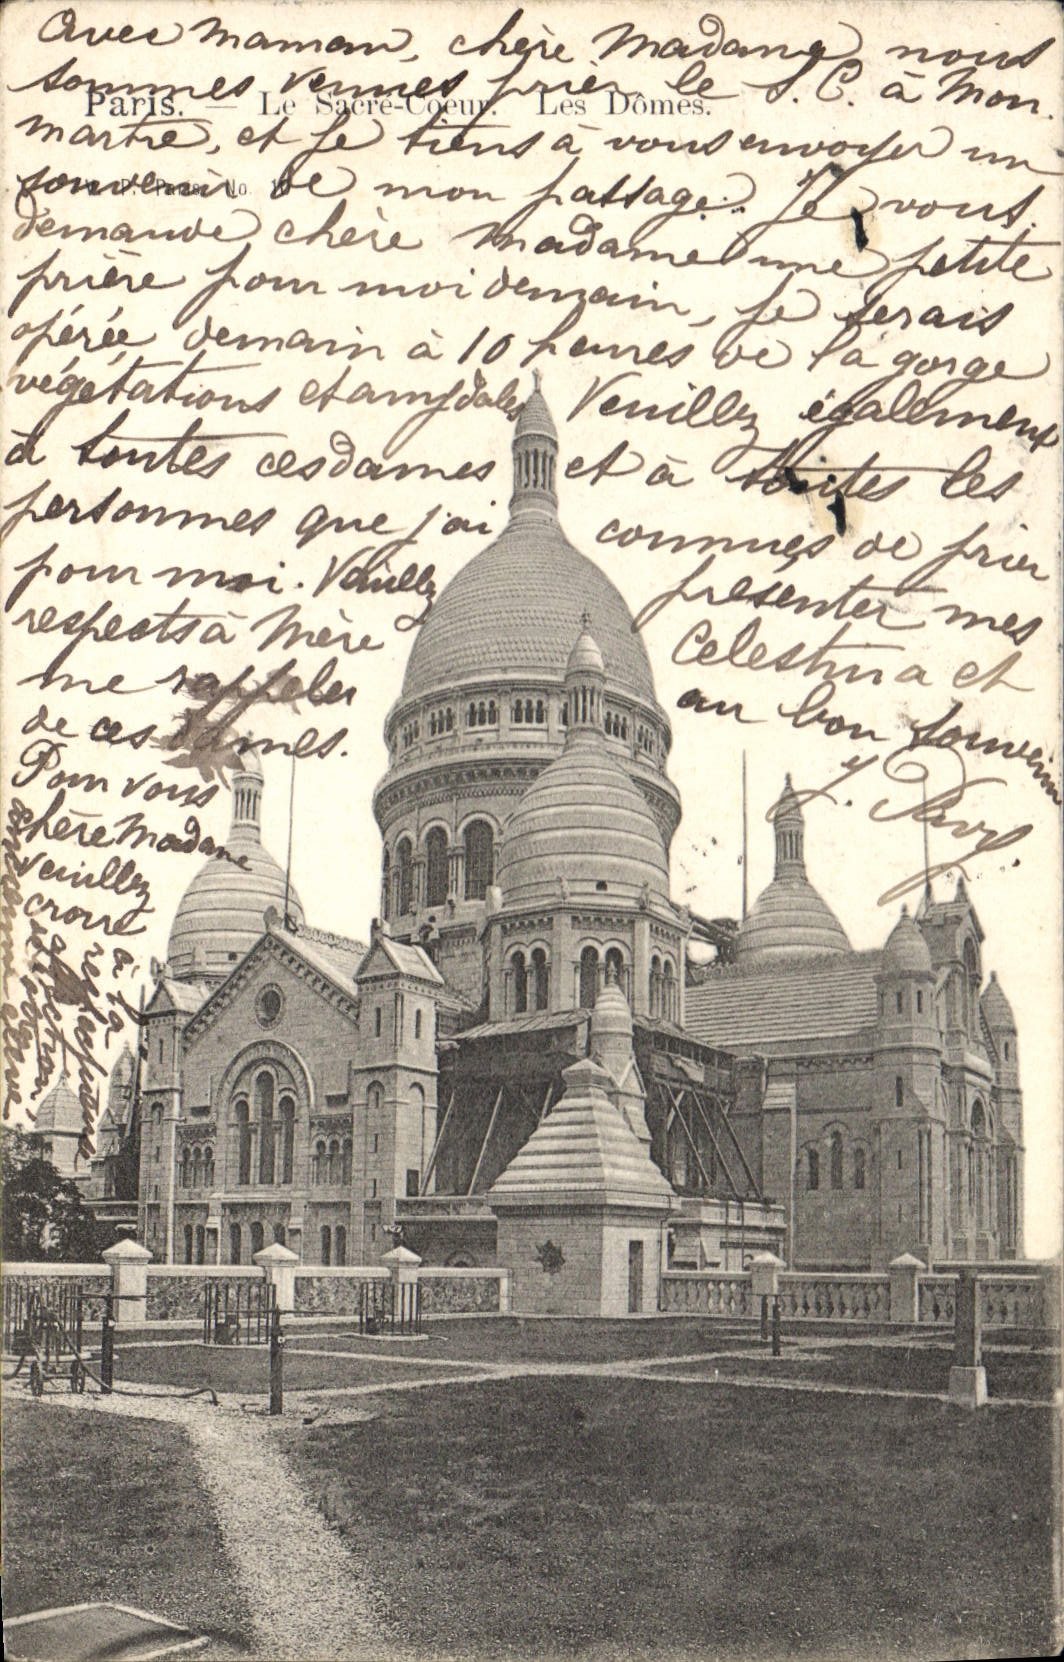 Avec maman, chère Madame nous
sommes venues prier le S. C. à Mon
Paris. — Le Sacré-Coeur. Les Dômes.
martre, et je tiens à vous envoyer un
souvenir de mon passage. Je vous
demande chère Madame une petite
prière pour moi demain, je serais
opérée demain à 10 heures de la gorge
végétations et amygdales Veuillez également
à toutes ces dames et à toutes les
personnes que j'ai connues de prier
pour moi. Veuillez présenter mes
respects à Mère Celestina et
me rappeler au bon souvenir
de ces dames.
J. Pavy.
Pour vous
chère Madame
veuillez
croire
à la
respectueuse
affection
de votre
ancienne élève